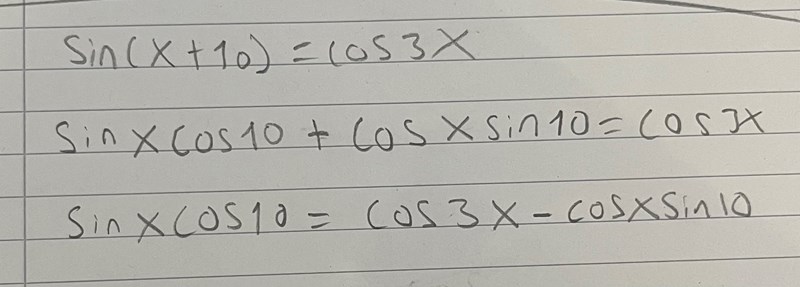 Sin(x+10) = cos3x
Sinxcos10 + cosxsin10 = cos3x
Sinxcos10 = cos3x - cosxsin10